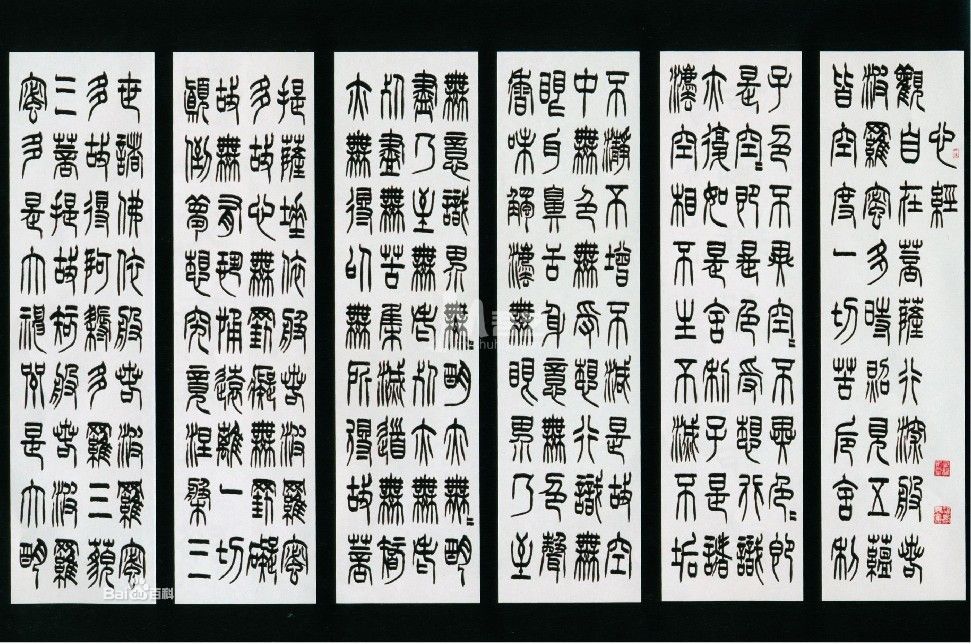 心經
觀自在菩薩行深般若
波羅蜜多時照見五蘊
皆空度一切苦厄舍利
子色不異空〻不異色〻即
是空〻即是色受想行識
亦復如是舍利子是諸
法空相不生不滅不垢
不淨不增不減是故空
中無色無受想行識無
眼耳鼻舌身意無色聲
香味觸法無眼界乃至
無意識界無〻明亦無〻明
盡乃至無老死亦無老
死盡無苦集滅道無智
亦無得以無所得故菩
提薩埵依般若波羅蜜
多故心無罣礙無罣礙
故無有恐怖遠離一切
顛倒夢想究竟涅槃三
世諸佛依般若波羅蜜
多故得阿耨多羅三藐
三菩提故知般若波羅
蜜多是大神咒是大明
Baidu百科